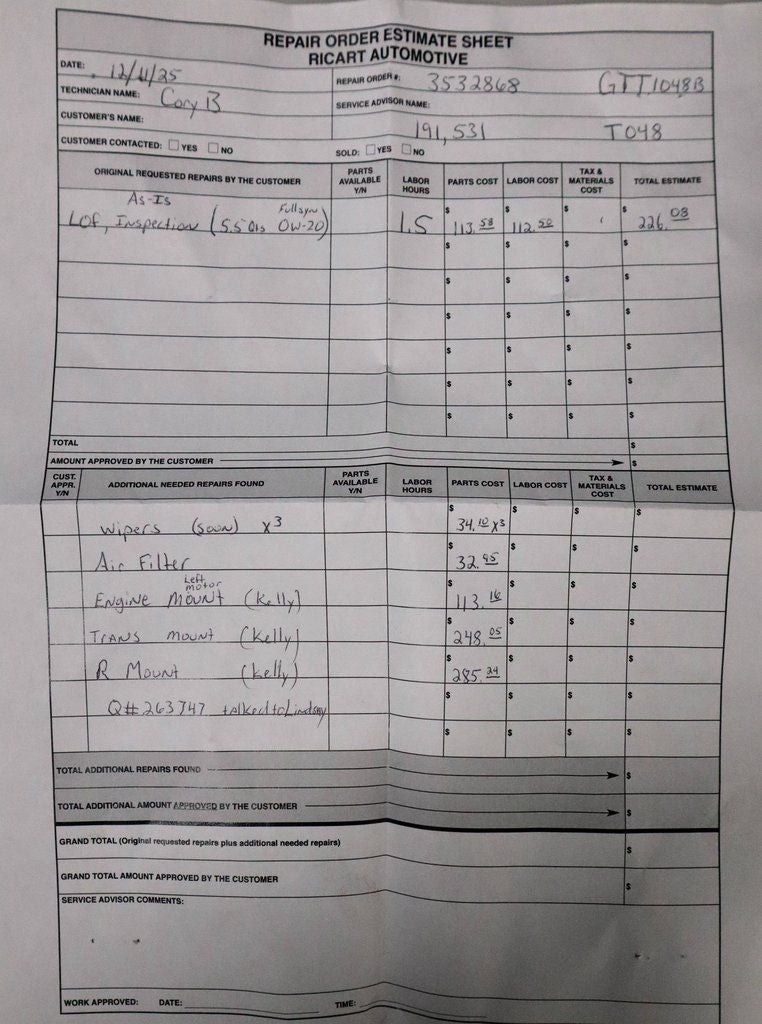 REPAIR ORDER ESTIMATE SHEET
RICART AUTOMOTIVE
DATE: 12/11/25
REPAIR ORDER #: 3532868 GTT1048B
TECHNICIAN NAME: Cory B
SERVICE ADVISOR NAME:
CUSTOMER'S NAME:
191,531 T048
CUSTOMER CONTACTED: YES NO
SOLD: YES NO
ORIGINAL REQUESTED REPAIRS BY THE CUSTOMER PARTS AVAILABLE Y/N LABOR HOURS PARTS COST LABOR COST TAX & MATERIALS COST TOTAL ESTIMATE
As-Is
LOF, Inspection (5.5 Qts Full syn 0W-20) 1.5 $113.58 $112.50 $ $226.08
$ $ $ $
$ $ $ $
$ $ $ $
$ $ $ $
$ $ $ $
$ $ $ $
TOTAL $
AMOUNT APPROVED BY THE CUSTOMER $
CUST. APPR. Y/N ADDITIONAL NEEDED REPAIRS FOUND PARTS AVAILABLE Y/N LABOR HOURS PARTS COST LABOR COST TAX & MATERIALS COST TOTAL ESTIMATE
Wipers (soon) x3 $34.10 x3 $ $ $
Air Filter $32.95 $ $ $
Left motor
Engine Mount (Kelly) $113.16 $ $ $
Trans mount (Kelly) $248.05 $ $ $
R Mount (Kelly) $285.24 $ $ $
Q# 263747 talked to Lindsay $ $ $ $
$ $ $ $
TOTAL ADDITIONAL REPAIRS FOUND $
TOTAL ADDITIONAL AMOUNT APPROVED BY THE CUSTOMER $
GRAND TOTAL (Original requested repairs plus additional needed repairs) $
GRAND TOTAL AMOUNT APPROVED BY THE CUSTOMER $
SERVICE ADVISOR COMMENTS:
WORK APPROVED: DATE: TIME: